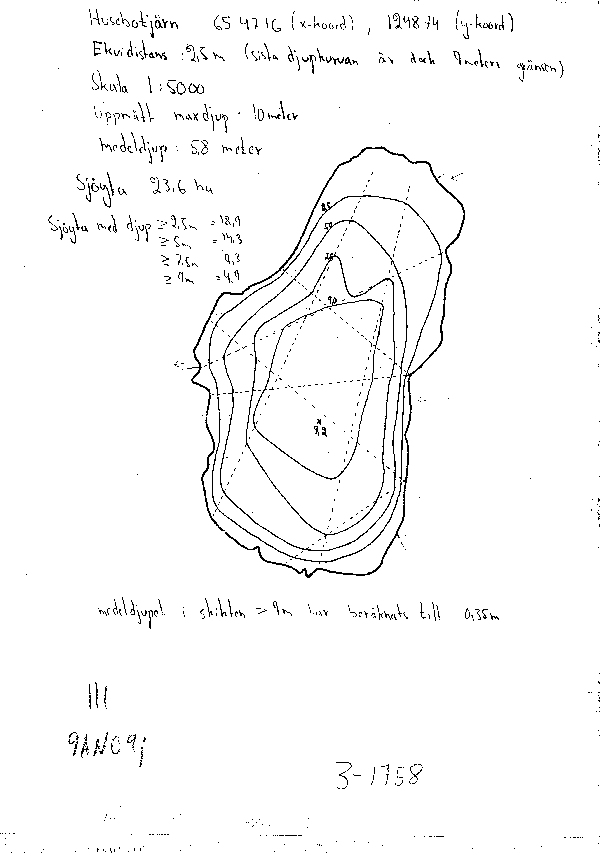 Husebotjärn 654716 (x-koord), 129874 (y-koord)
Ekvidistans: 2,5 m (sista djupkurvan är dock 9 meters gränsen)
Skala 1:5000
Uppmätt maxdjup: 10 meter
medeldjup: 5,8 meter
Sjöyta 23,6 ha
Sjöyta med djup ≥ 2,5m = 18,9
≥ 5m = 14,3
≥ 7,5m 9,3
≥ 9m = 4,9
2,5
5,0
7,5
9,0
9,2
medeldjupet i skikten > 9m har beräknats till 0,35m
III
9ANO9j
3-1758